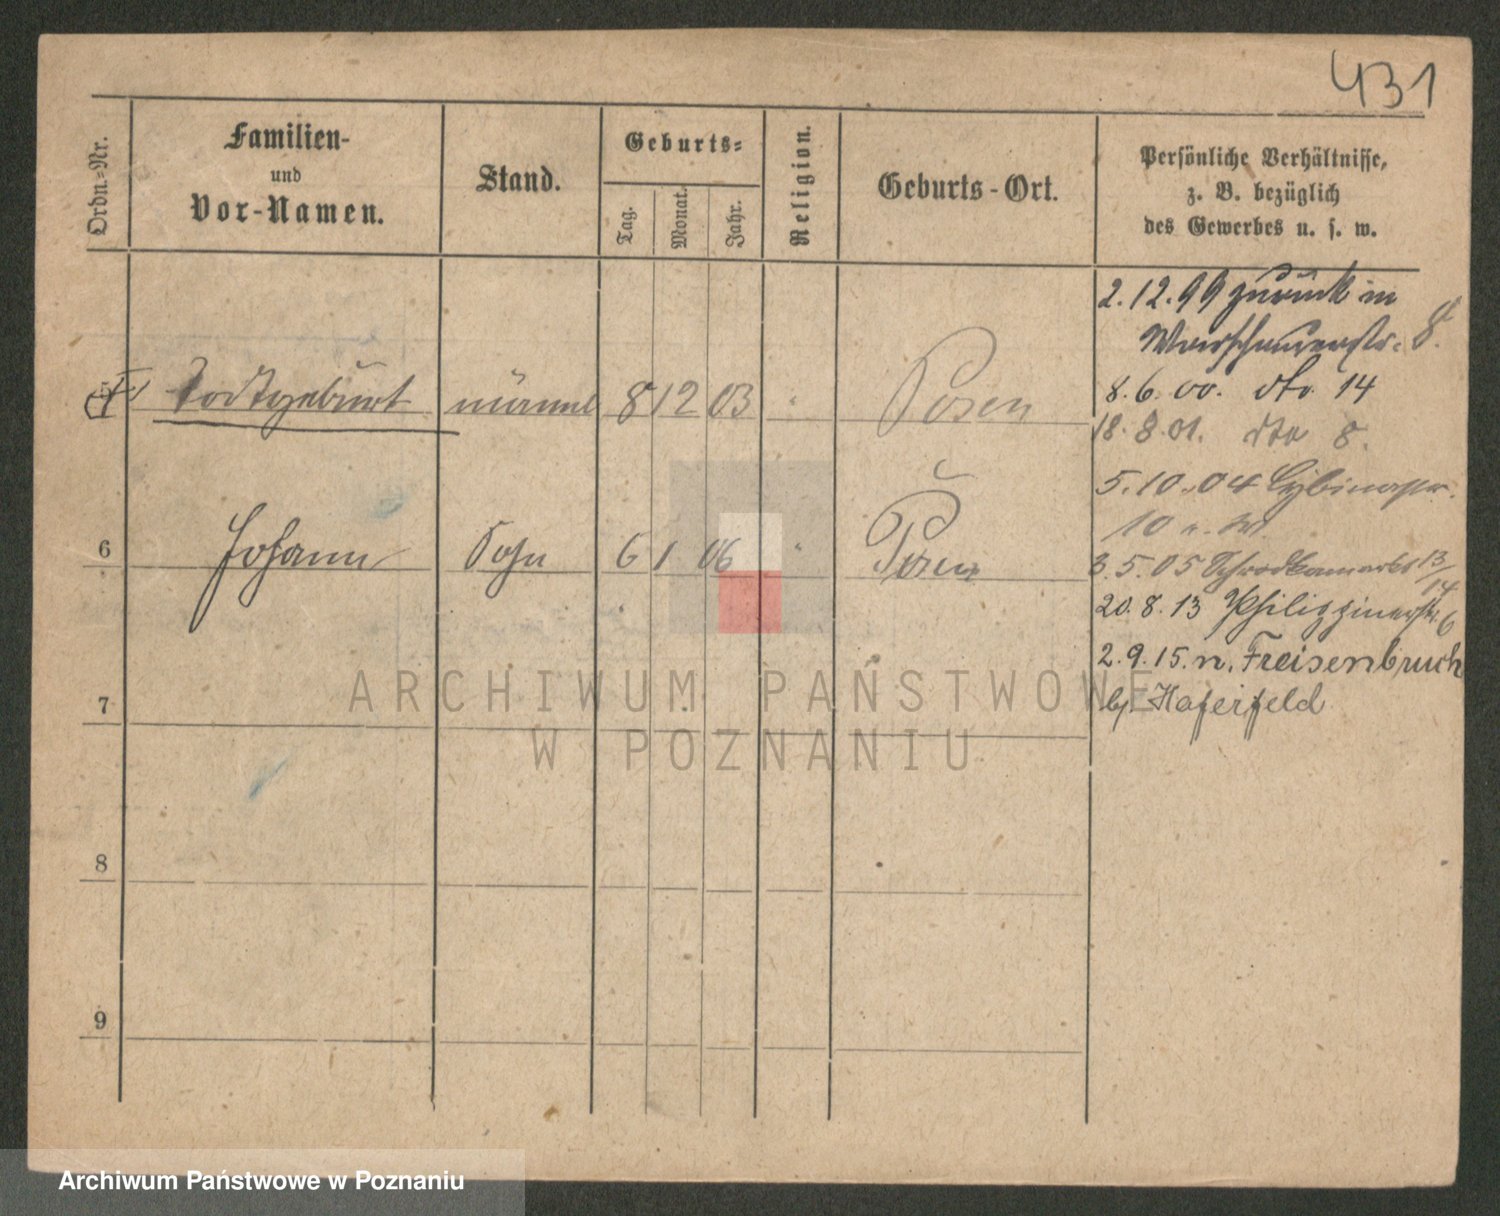 431
Ordn.-Nr.
Familien-
und
Vor-Namen.
Stand.
Geburts-
Tag.
Monat.
Jahr.
Religion.
Geburts-Ort.
Persönliche Verhältnisse,
z. B. bezüglich
des Gewerbes u. s. w.
2.12.99 zurück in
Wreschenerstr. 8.
Todtgeburt männl 8 12 03 " Posen
8.6.00. dto. 14
18.8.01. dto 8.
5.10.04 Cybinastr.
10 n. W.
6 Johann Sohn 6 1 06 " Posen
3.5.05 Schrodkamarkt 13/14
20.8.13 Philippinerstr. 6
2.9.15. n. Freisenbruch
7
bj. Haferfeld
8
9
ARCHIWUM PAŃSTWOWE
W POZNANIU
Archiwum Państwowe w Poznaniu